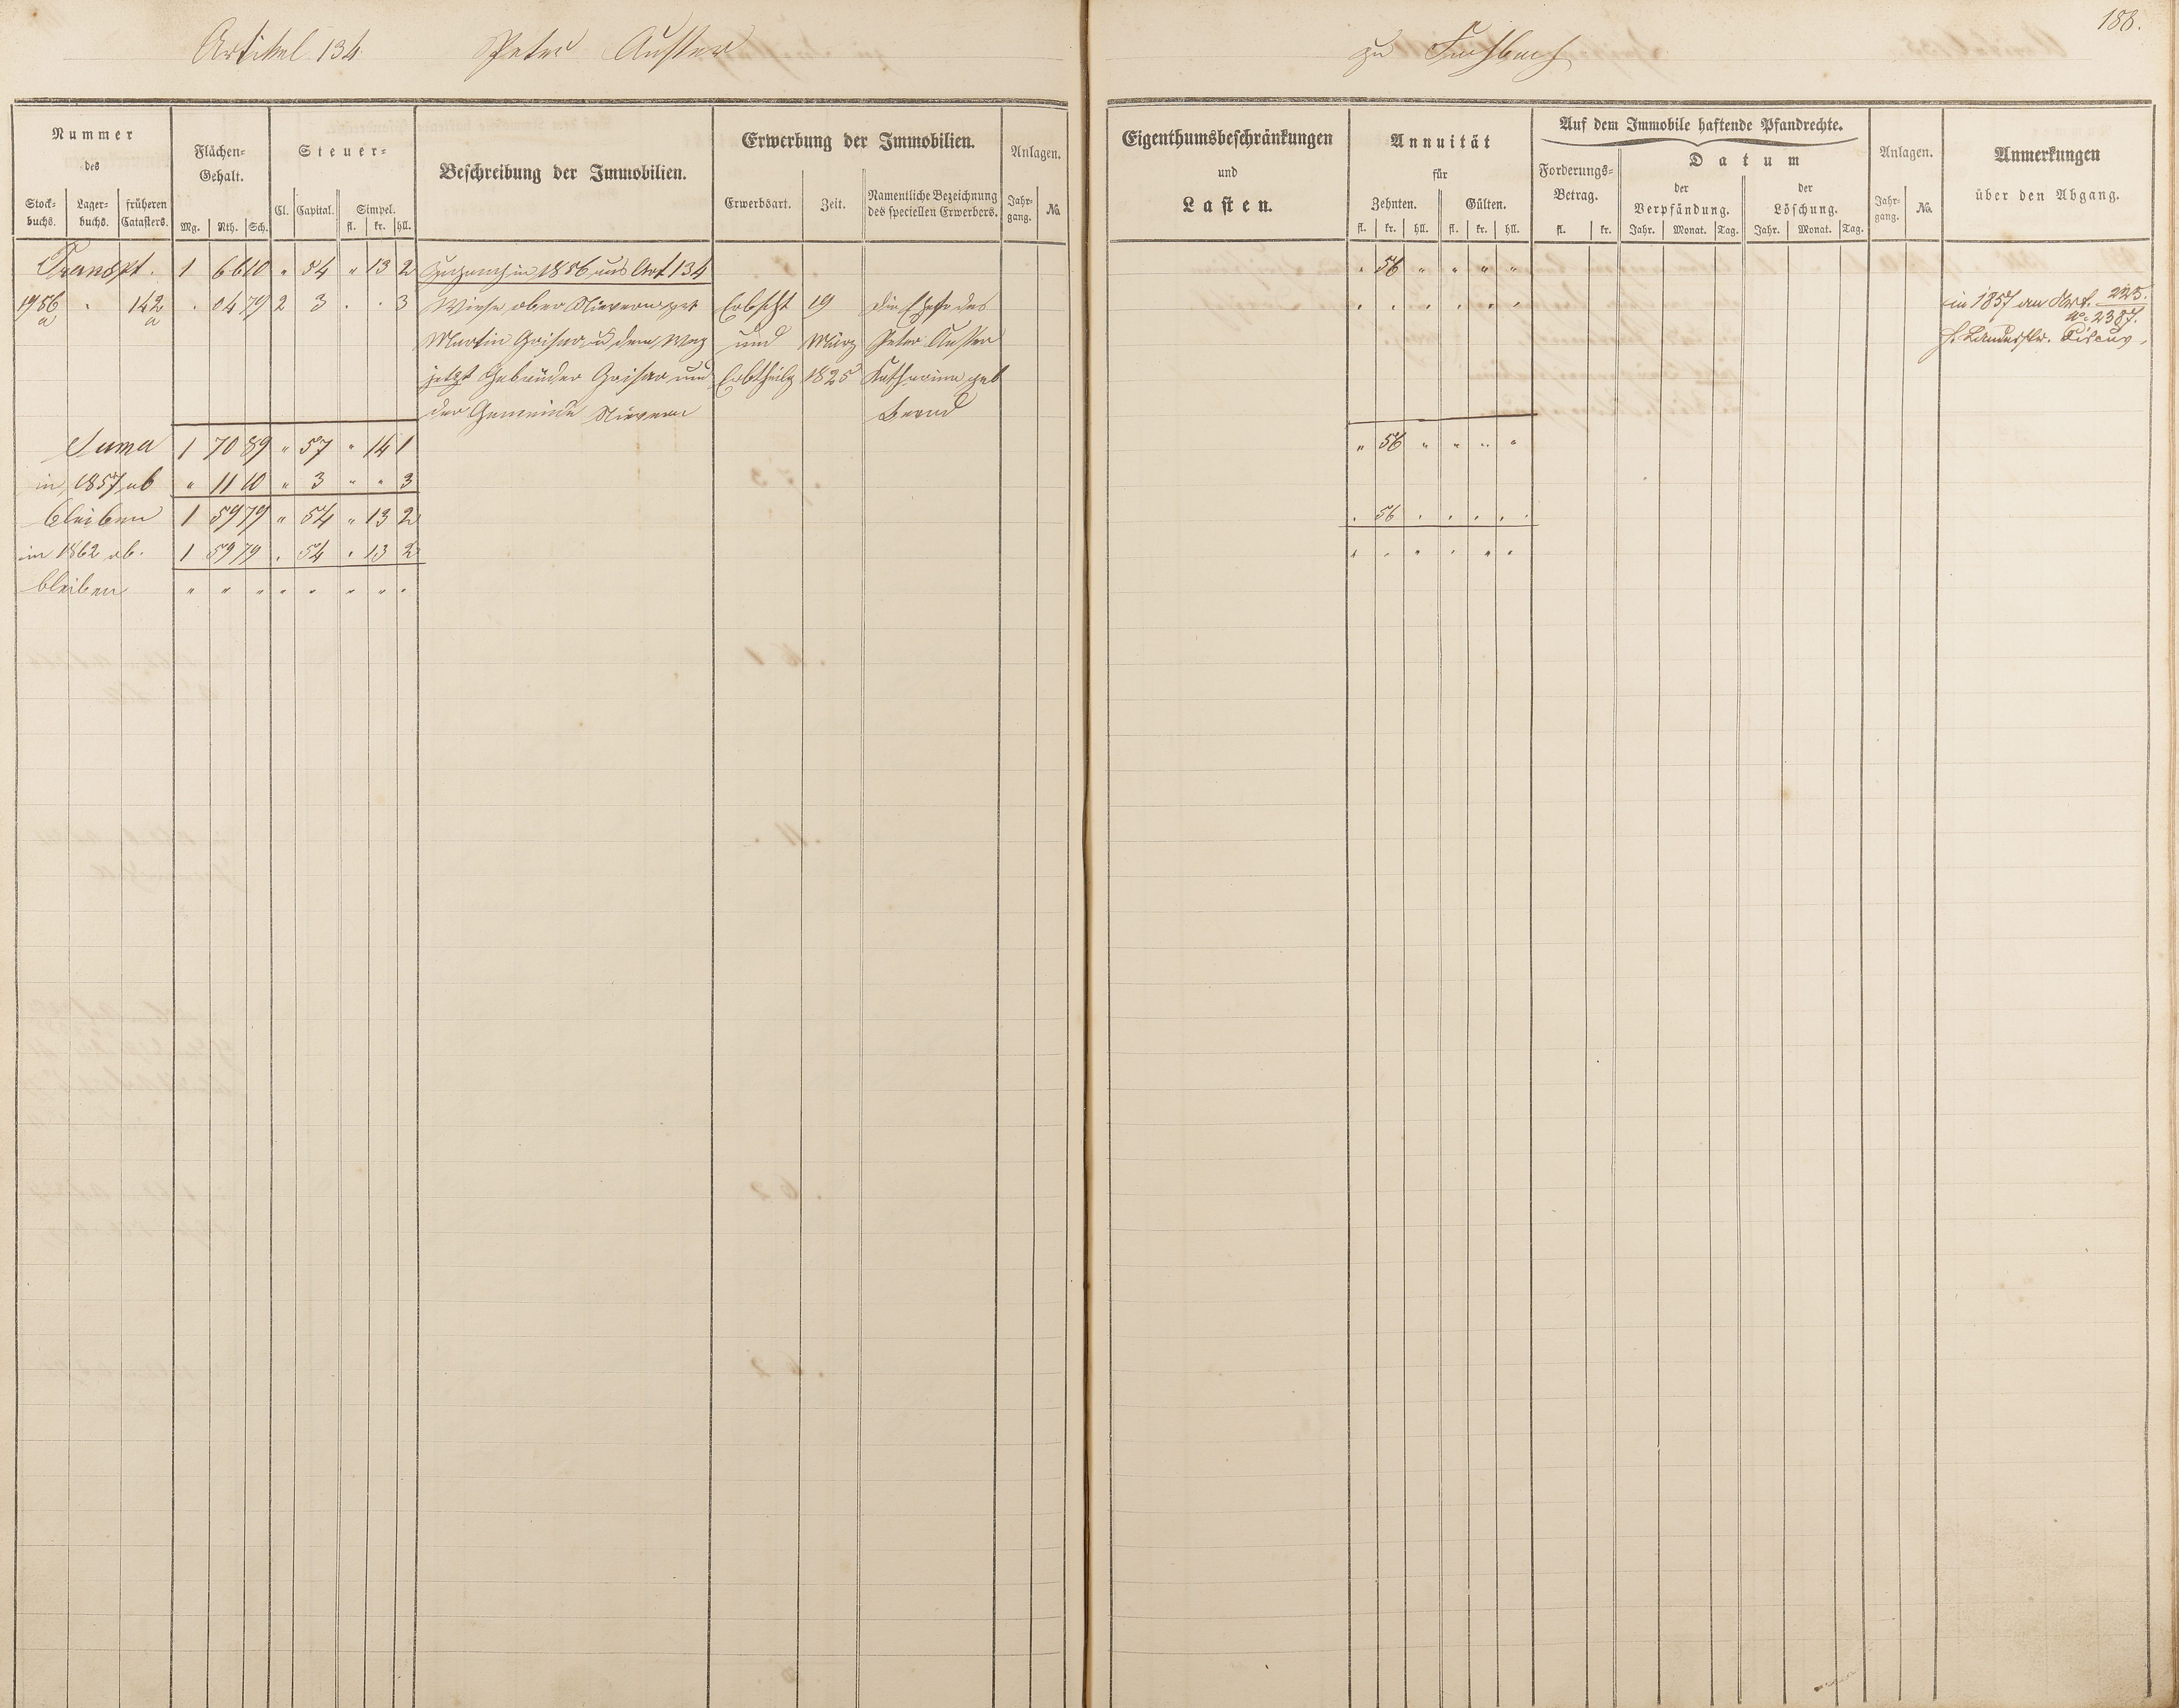 188.
Artikel 134. Peter Auster zu Fachbach
Nummer des
Stockbuchs. Lagerbuchs. früheren Catasters.
Flächen-Gehalt.
Mg. Rth. Sch.
Steuer-
Cl. Capital. Simpel.
fl. kr. hll.
Beschreibung der Immobilien.
Erwerbung der Immobilien.
Erwerbsart. Zeit. Namentliche Bezeichnung des speciellen Erwerbers.
Anlagen.
Jahrgang. No.
Eigenthumsbeschränkungen
und
Lasten.
Annuität
für
Zehnten. Gülten.
fl. kr. hll. fl. kr. hll.
Auf dem Immobile haftende Pfandrechte.
Forderungs-Betrag.
fl. kr.
Datum
der Verpfändung. der Löschung.
Jahr. Monat. Tag. Jahr. Monat. Tag.
Anlagen.
Jahrgang. No.
Anmerkungen
über den Abgang.
Transpt. 1 66 10 " 54 " 13 2 in 1856 aus Art 134 . 56 " " " "
1956 a " 142 a . 04 79 2 3 . . 3 Wiese ober Nievern Erbscht 19 die Ehefr des . . . . . . in 1857 an Art. 225.
Martin Grisar u dem Weg und März Peter Auster No 2387.
jetzt Gebrüder Grisar und Erbtheilg 1825 Katharina geb
der Gemeinde Nievern Bernd
Suma 1 70 89 " 57 " 14 1 " 56 " " " "
in 1857 ab " 11 10 " 3 " " 3
bleiben 1 59 79 " 54 " 13 2 . 56 . . . .
in 1862 ab. 1 59 79 . 54 . 13 2 . . . . . .
bleiben " " " " " " " "